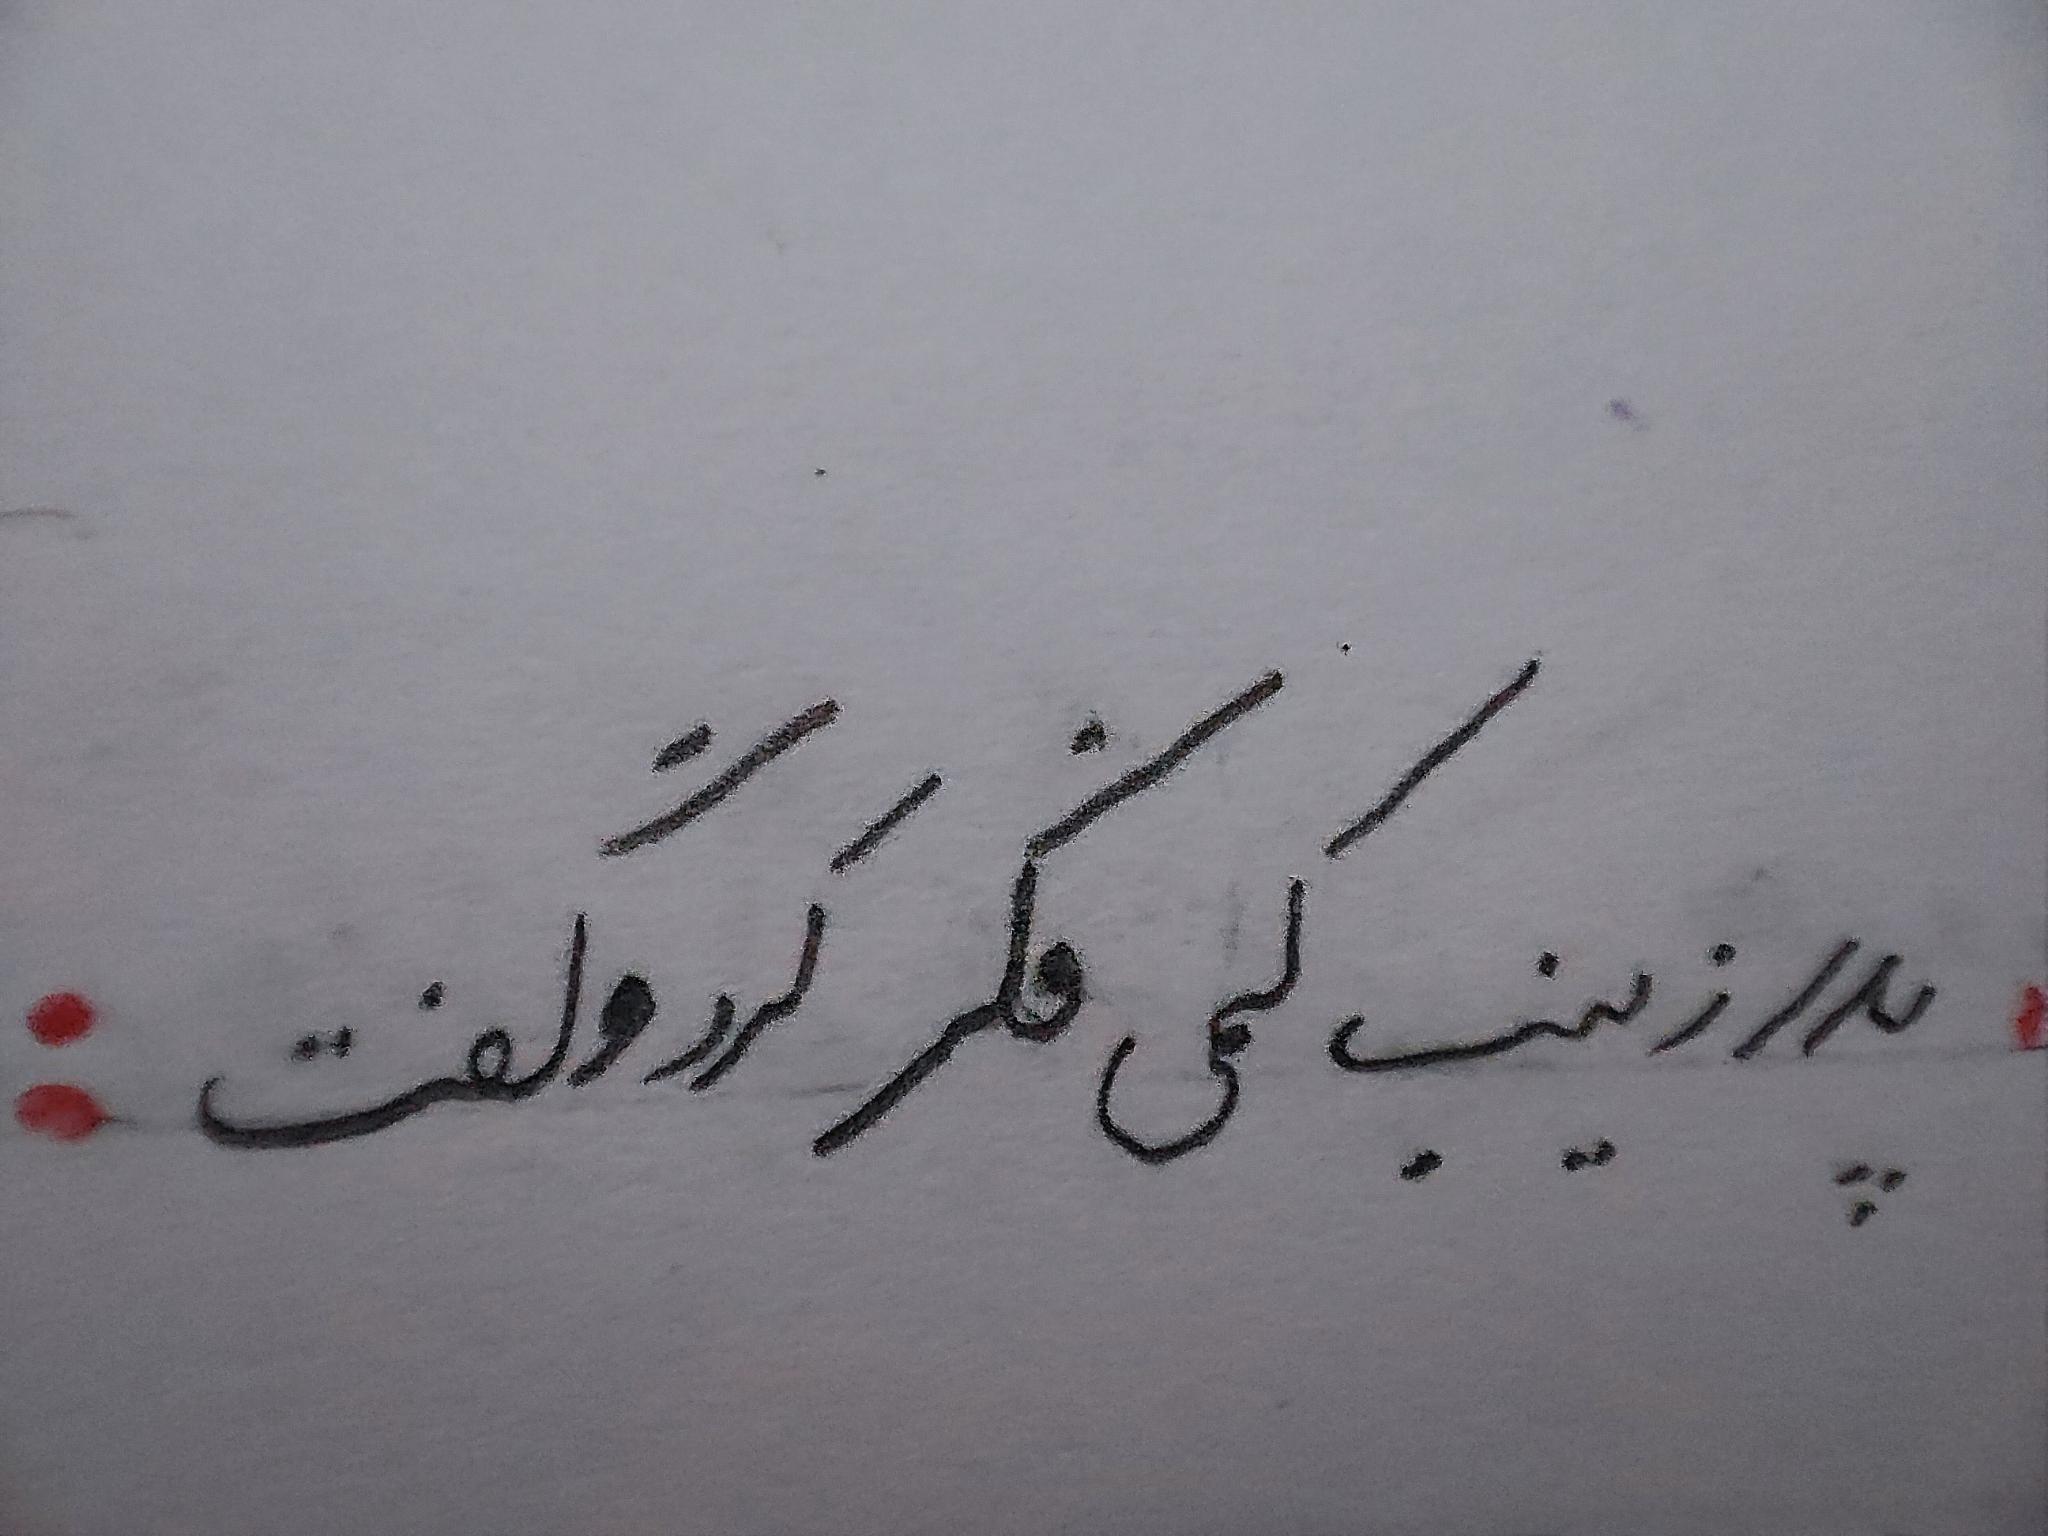 پدر زینب کمی فکر کرد و گفت :